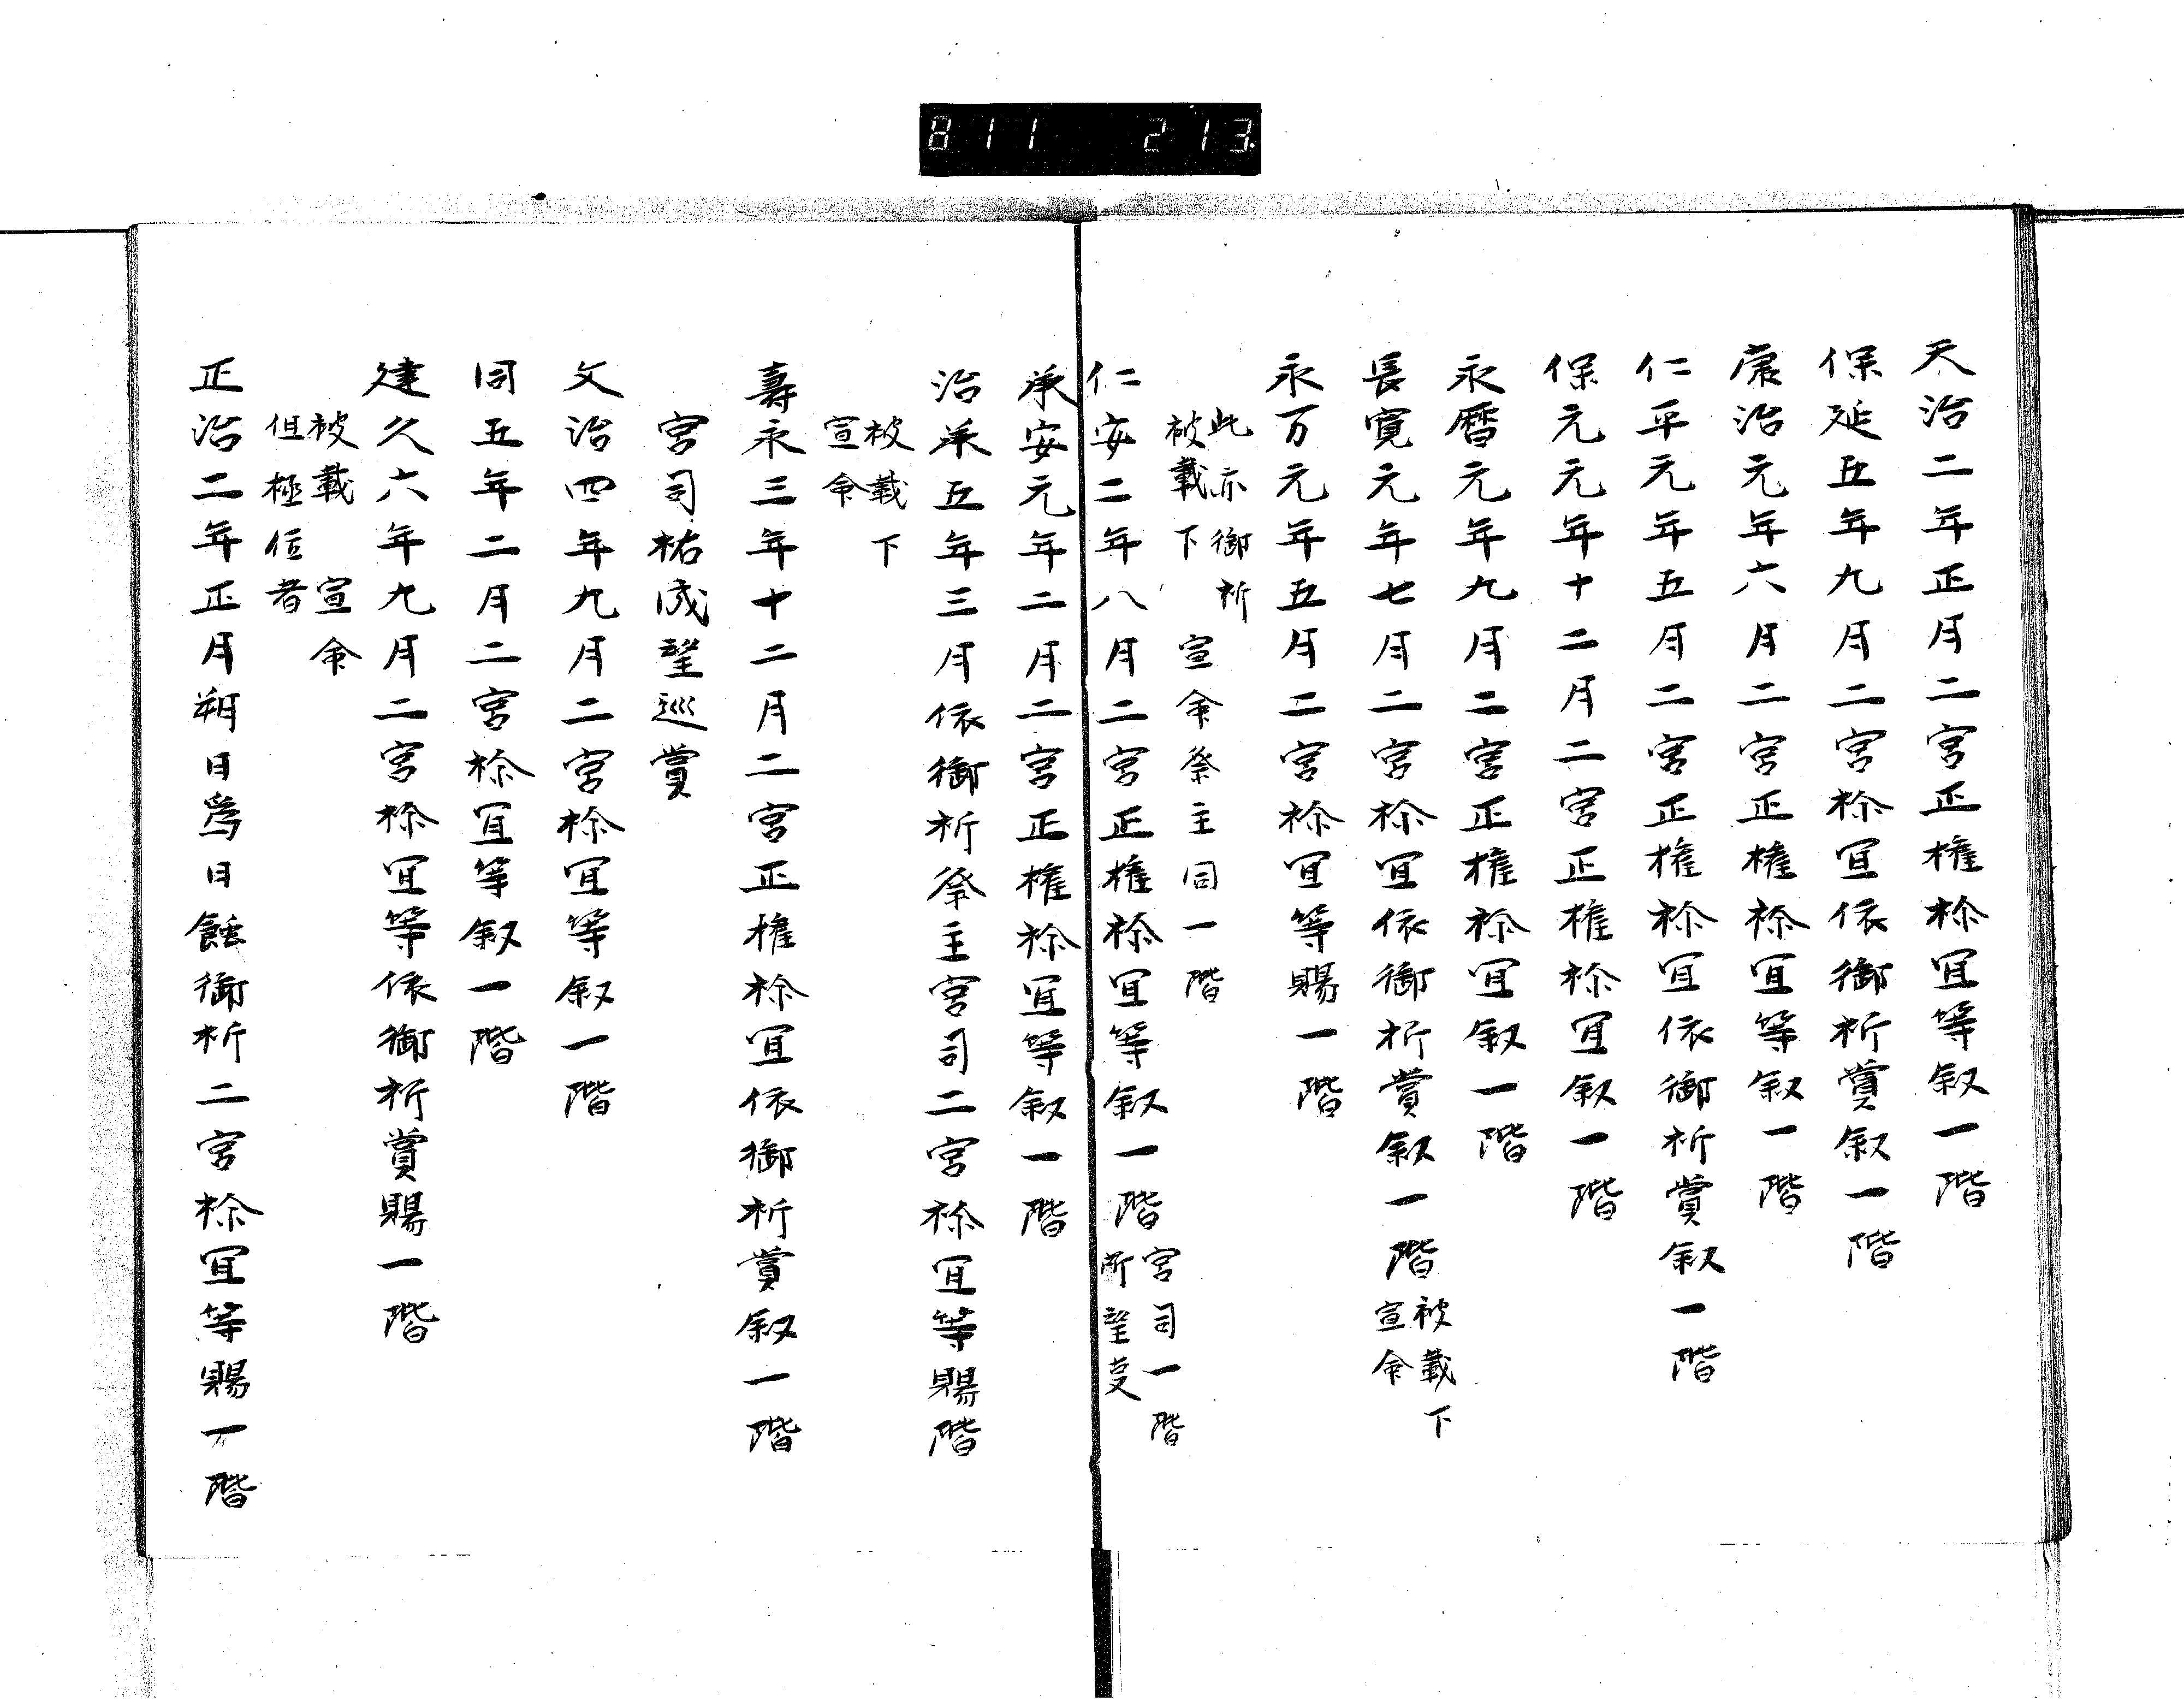 811 213
天治二年正月二宮正権祢宜等叙一階
保延五年九月二宮祢宜依御祈賞叙一階
康治元年六月二宮正権祢宜等叙一階
仁平元年五月二宮正権祢宜依御祈賞叙一階
保元元年十二月二宮正権祢宜叙一階
永暦元年九月二宮正権祢宜叙一階
長寛元年七月二宮祢宜依御祈賞叙一階被載下
宣命
永万元年五月二宮祢宜等賜一階
此亦御祈
被載下 宣命祭主同一階
仁安二年八月二宮正権祢宜等叙一階宮司一階
所望支
承安元年二月二宮正権祢宜等叙一階
治承五年三月依御祈祭主宮司二宮祢宜等賜階
被載下
宣命
壽永三年十二月二宮正権祢宜依御祈賞叙一階
宮司祐成望巡賞
文治四年九月二宮祢宜等叙一階
同五年二月二宮祢宜等叙一階
建久六年九月二宮祢宜等依御祈賞賜一階
被載 宣命
但極位者
正治二年正月朔日為日蝕御祈二宮祢宜等賜一階